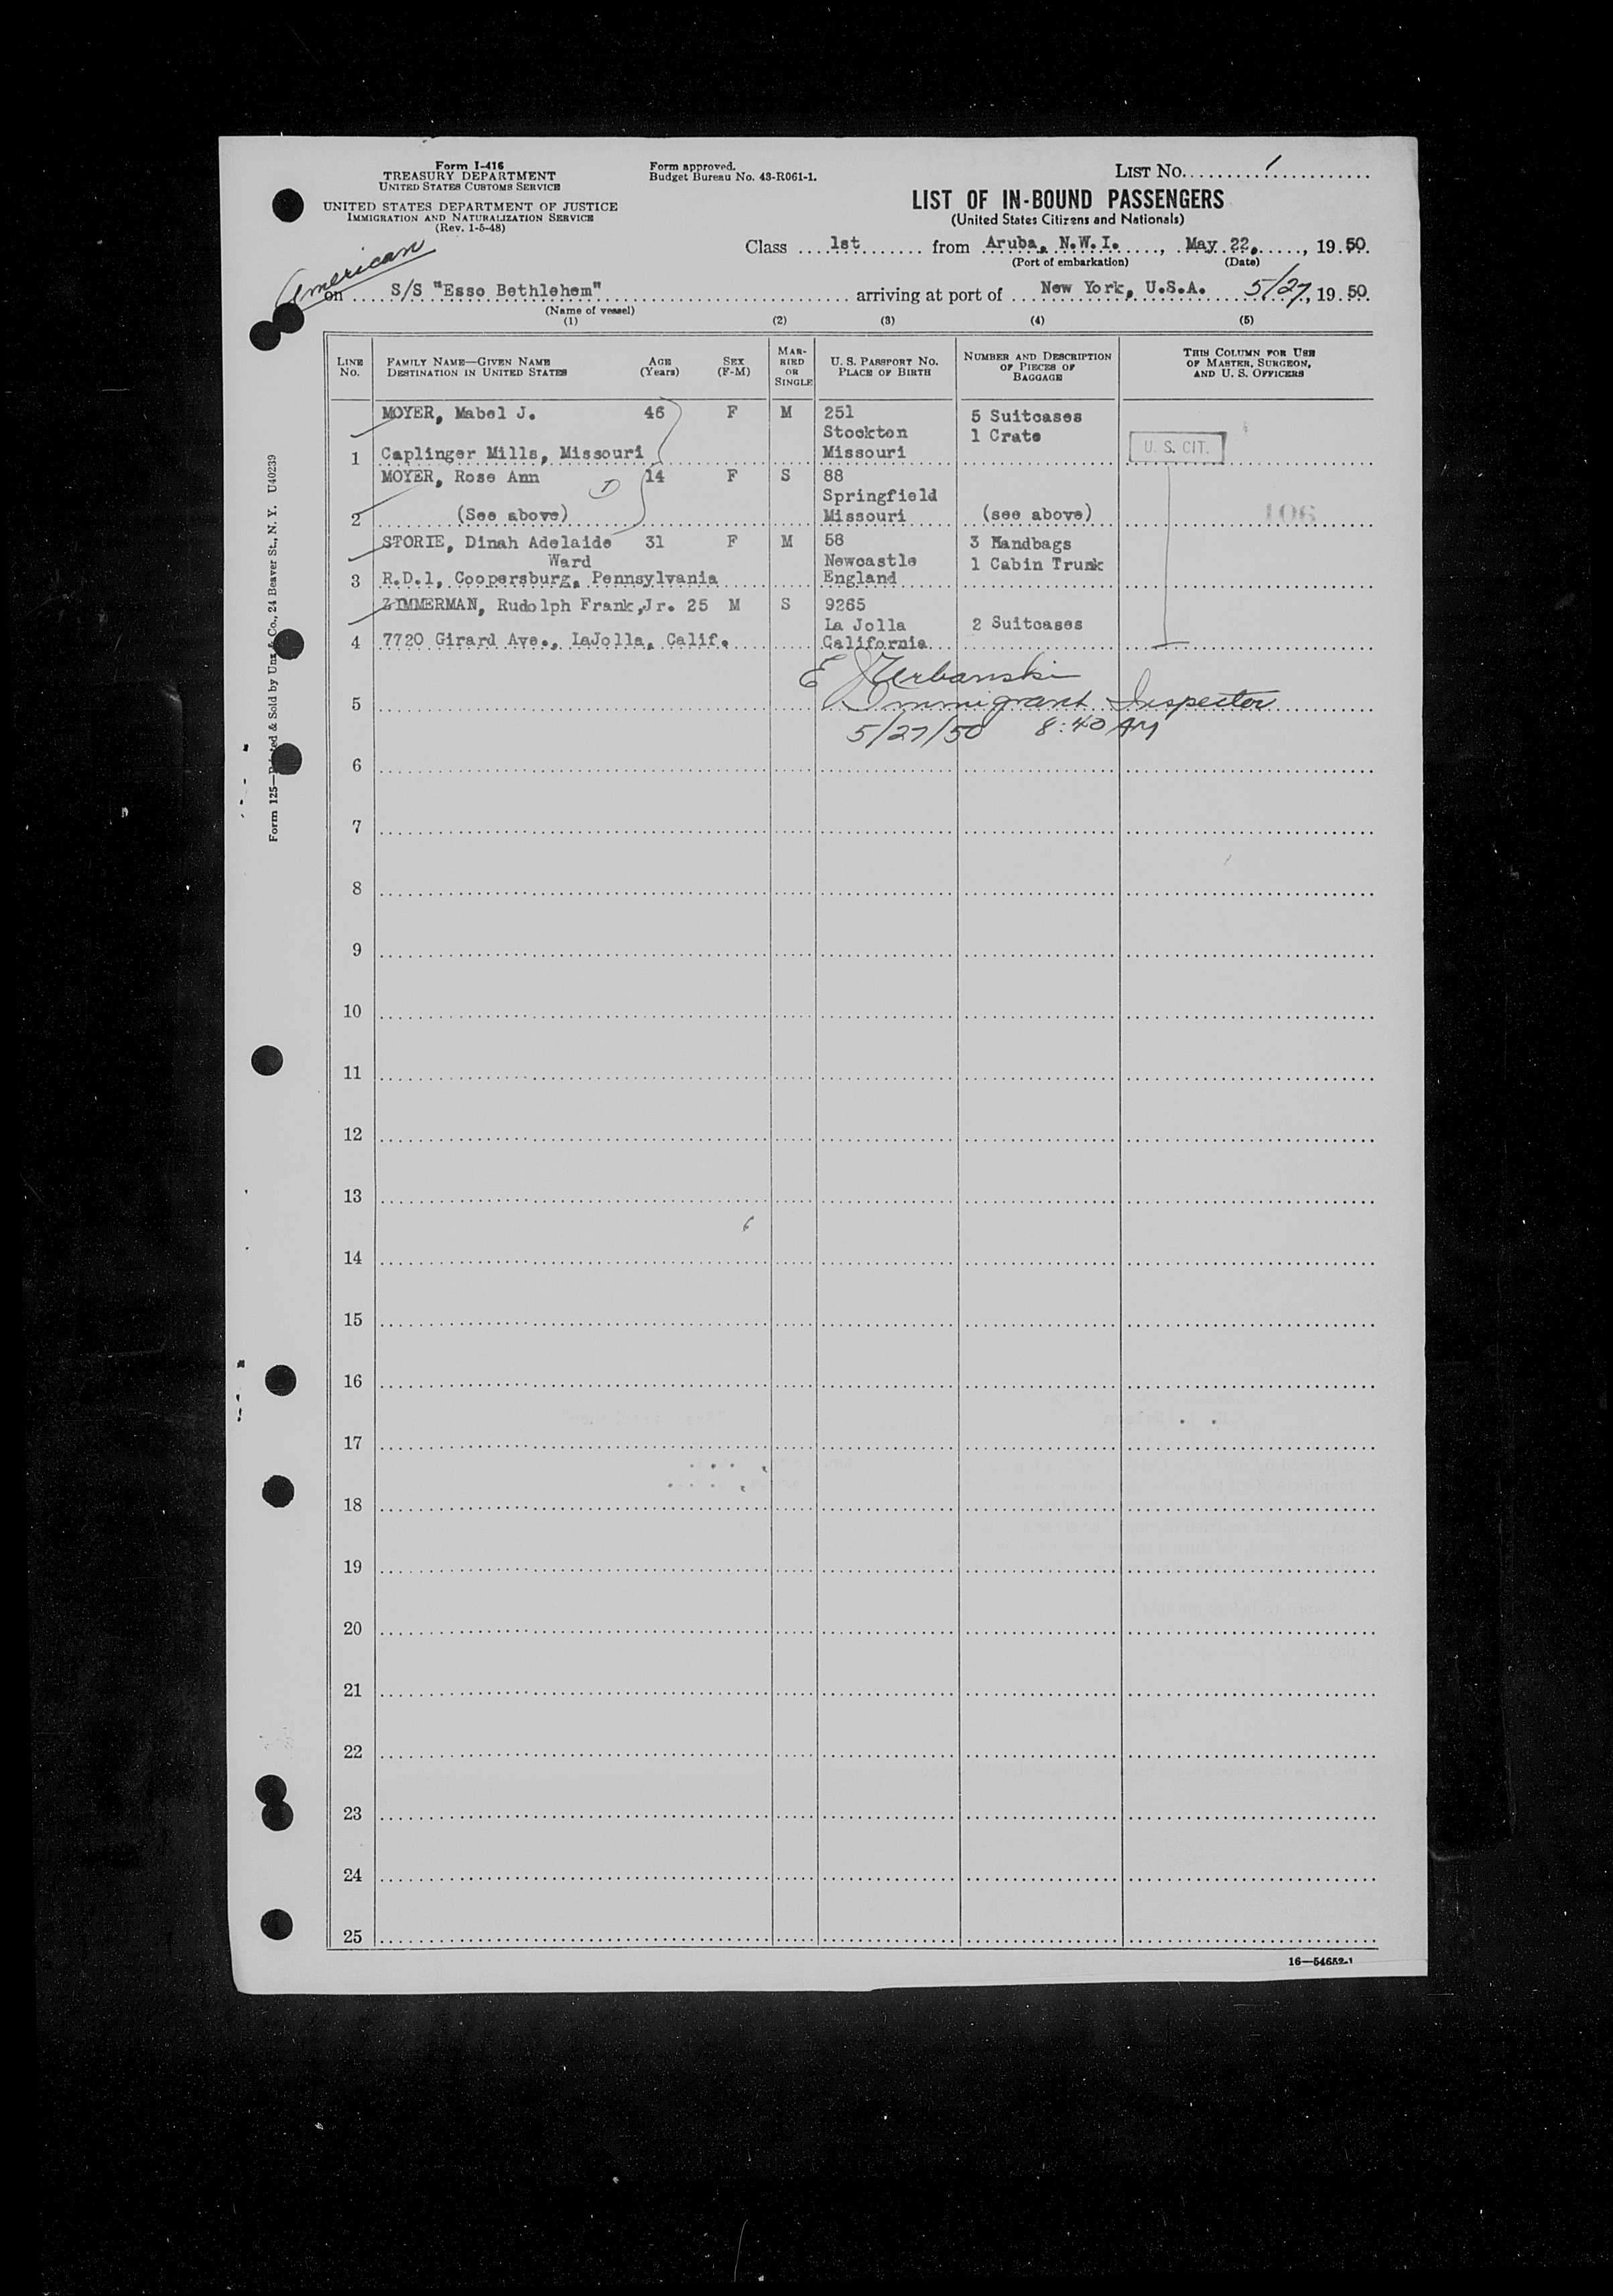 Form I-416
TREASURY DEPARTMENT
UNITED STATES CUSTOMS SERVICE
UNITED STATES DEPARTMENT OF JUSTICE
IMMIGRATION AND NATURALIZATION SERVICE
(Rev. 1-5-48)
Form approved.
Budget Bureau No. 43-R061-1.
LIST No. 1
LIST OF IN-BOUND PASSENGERS
(United States Citizens and Nationals)
Class 1st from Aruba, N.W.I., May 22, 1950.
(Port of embarkation) (Date)
American
on S/S "Esso Bethlehem" arriving at port of New York, U.S.A. 5/27, 1950.
(Name of vessel)
(1) (2) (3) (4) (5)
LINE No.
FAMILY NAME—GIVEN NAME
DESTINATION IN UNITED STATES
AGE (Years)
SEX (F-M)
MARRIED OR SINGLE
U. S. PASSPORT No.
PLACE OF BIRTH
NUMBER AND DESCRIPTION OF PIECES OF BAGGAGE
THIS COLUMN FOR USE OF MASTER, SURGEON, AND U. S. OFFICERS
MOYER, Mabel J. 46 F M 251 5 Suitcases
Stockton 1 Crate
1 Caplinger Mills, Missouri Missouri
U. S. CIT.
MOYER, Rose Ann 14 F S 88
Springfield
2 (See above) Missouri (see above)
106
STORIE, Dinah Adelaide 31 F M 58 3 Handbags
Ward Newcastle 1 Cabin Trunk
3 R.D.1, Coopersburg, Pennsylvania England
ZIMMERMAN, Rudolph Frank, Jr. 25 M S 9265
La Jolla 2 Suitcases
4 7720 Girard Ave., LaJolla, Calif. California
E J Urbanski
5 Immigrant Inspector
5/27/50 8:40 AM
6
7
8
9
10
11
12
13
14
15
16
17
18
19
20
21
22
23
24
25
16—54652-1
Form 125—Printed & Sold by Unz & Co., 24 Beaver St., N. Y. U40239